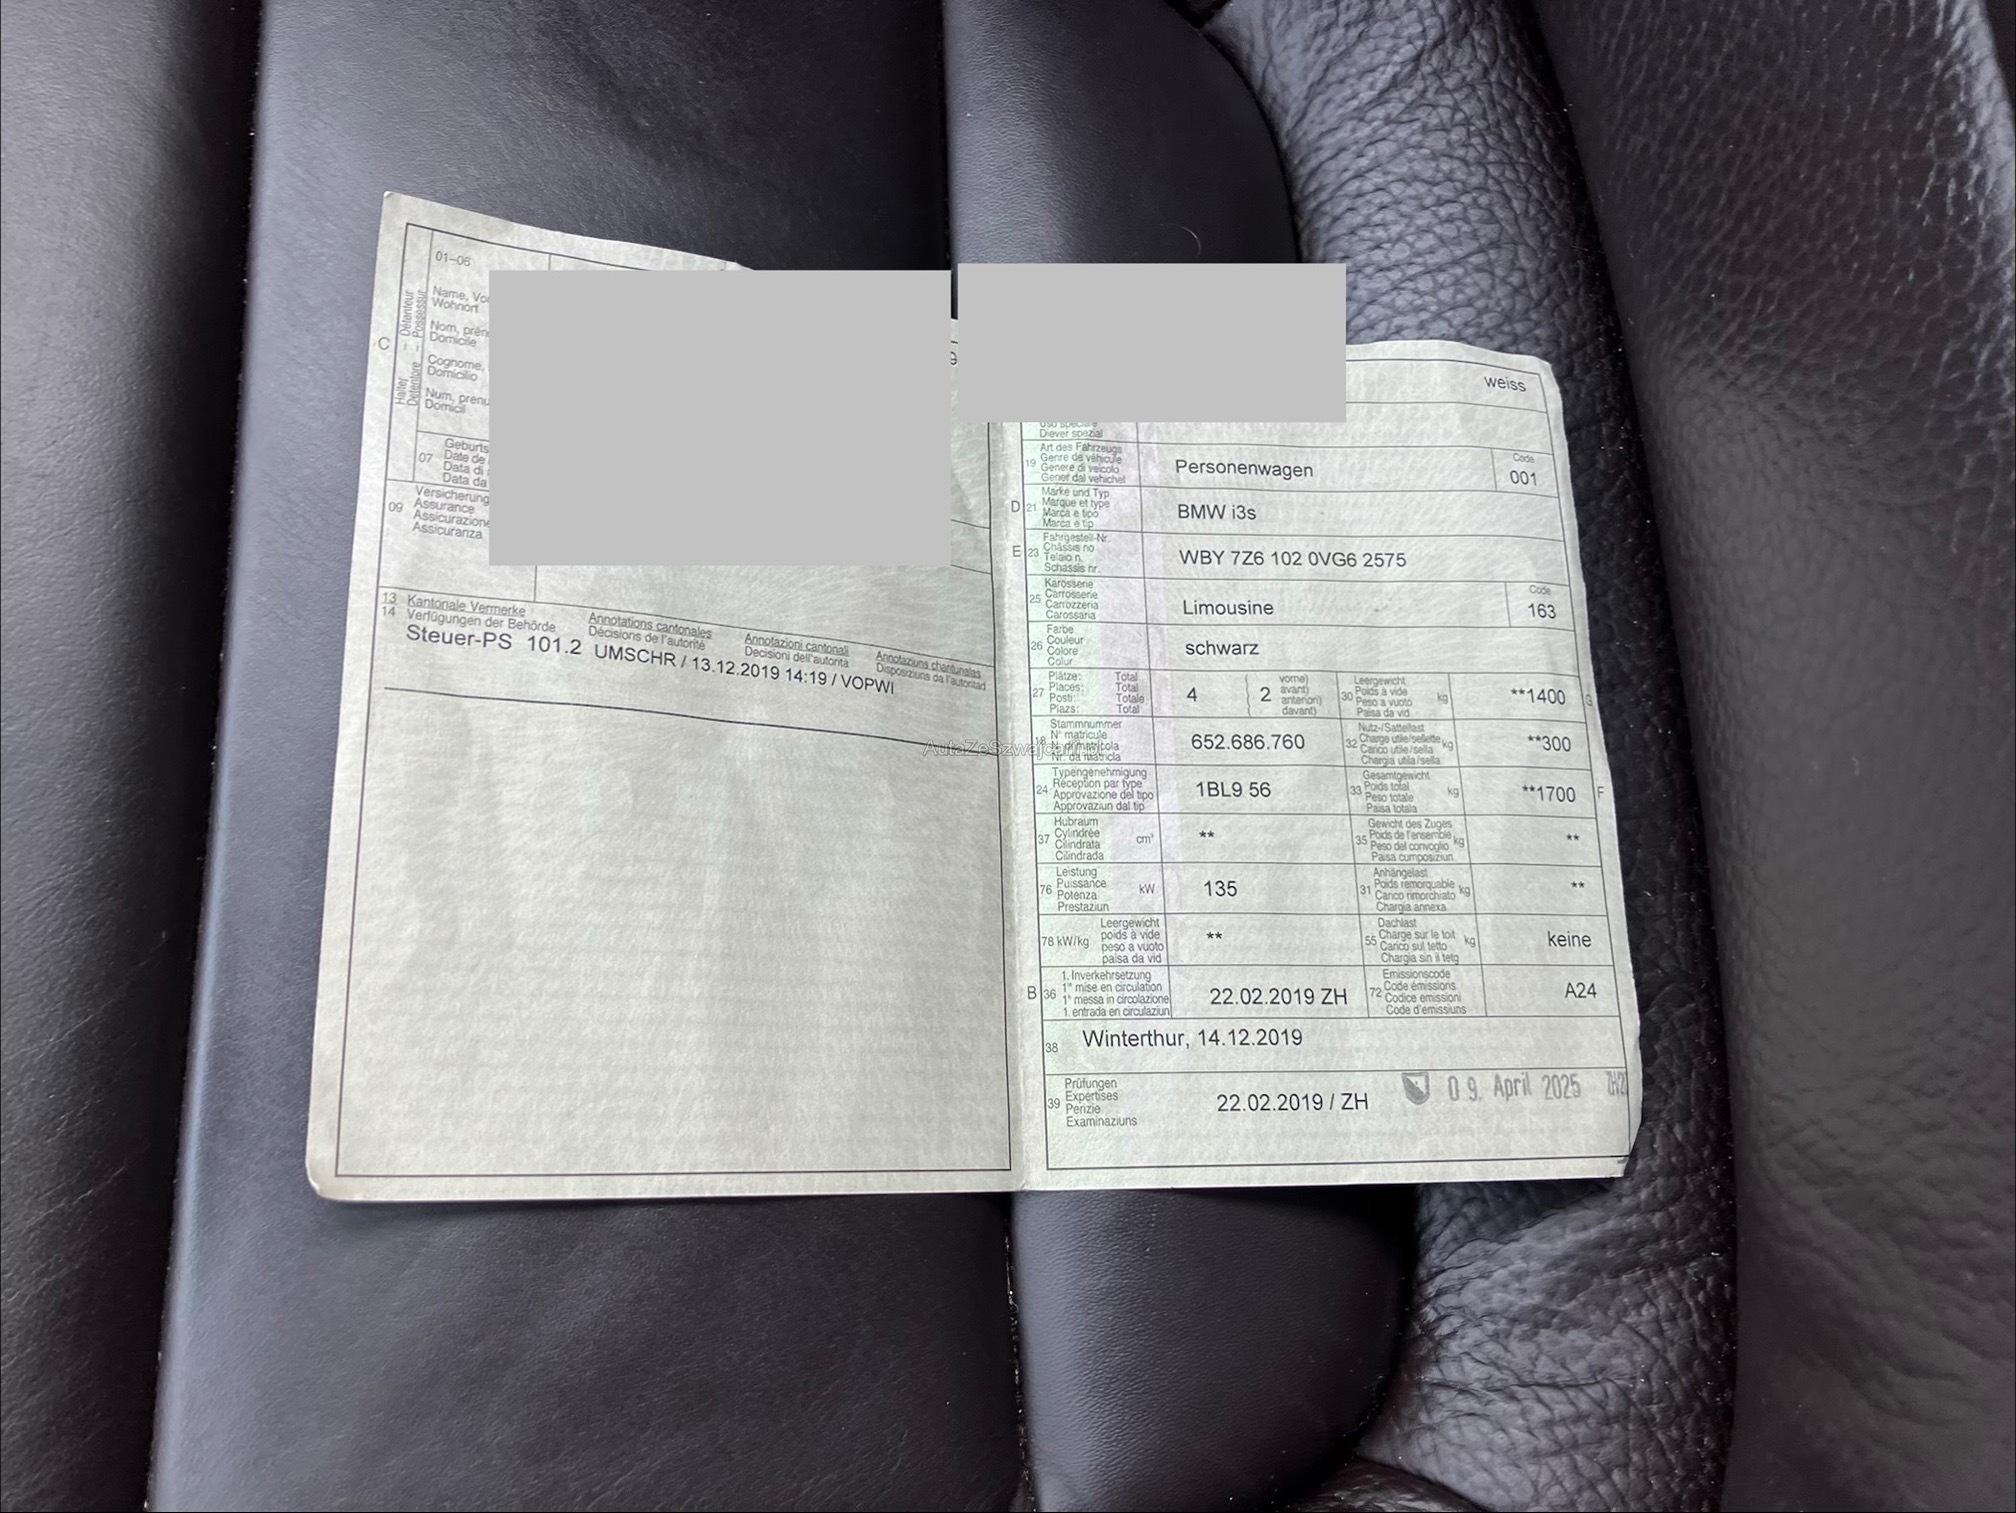 01–06
Name, Vo
Wohnort
Nom, prén
Domicile
Cognome,
Domicilio
Num, prenu
Domicil
C
Halter Détenteur
Detentore Possessur
07
Geburts
Date de
Data di
Data da
09
Versicherung
Assurance
Assicurazione
Assicuranza
13 Kantonale Vermerke Annotations cantonales Annotazioni cantonali Annotaziuns chantunalas
14 Verfügungen der Behörde Décisions de l'autorité Decisioni dell'autorità Disposiziuns da l'autoritad
Steuer-PS 101.2 UMSCHR / 13.12.2019 14:19 / VOPWI
weiss
Diever spezial
19 Art des Fahrzeugs
Genre de véhicule
Genere di veicolo
Gener dal vehichel
Personenwagen
Code
001
D 21 Marke und Typ
Marque et type
Marca e tipo
Marca e tip
BMW i3s
E 23 Fahrgestell-Nr.
Châssis no
Telaio n.
Schassis nr.
WBY 7Z6 102 0VG6 2575
25 Karosserie
Carrosserie
Carrozzeria
Carossaria
Limousine
Code
163
26 Farbe
Couleur
Colore
Colur
schwarz
27 Plätze: Total
Places: Total
Posti: Totale
Plazs: Total
4
2
vorne)
avant)
anteriori)
davant)
30 Leergewicht
Poids à vide kg
Peso a vuoto
Paisa da vid
**1400 G
18 Stammnummer
N° matricule
N. di matricola
Nr. da matricla
652.686.760
32 Nutz-/Sattellast
Charge utile/sellette kg
Carico utile/sella
Chargia utila/sella
**300
24 Typengenehmigung
Réception par type
Approvazione del tipo
Approvaziun dal tip
1BL9 56
33 Gesamtgewicht
Poids total kg
Peso totale
Paisa totala
**1700 F
37 Hubraum
Cylindrée cm³
Cilindrata
Cilindrada
**
35 Gewicht des Zuges
Poids de l'ensemble kg
Peso del convoglio
Paisa composiziun
**
76 Leistung
Puissance kW
Potenza
Prestaziun
135
31 Anhängelast
Poids remorquable kg
Carico rimorchiato
Chargia annexa
**
78 kW/kg Leergewicht
poids à vide
peso a vuoto
paisa da vid
**
55 Dachlast
Charge sur le toit kg
Carico sul tetto
Chargia sin il tetg
keine
B 36 1. Inverkehrsetzung
1re mise en circulation
1a messa in circolazione
1. entrada en circulaziun
22.02.2019 ZH
72 Emissionscode
Code émissions
Codice emissioni
Code d'emissiuns
A24
38 Winterthur, 14.12.2019
39 Prüfungen
Expertises
Perizie
Examinaziuns
22.02.2019 / ZH
09. April 2025
AutaZeSzwajcarii.pl